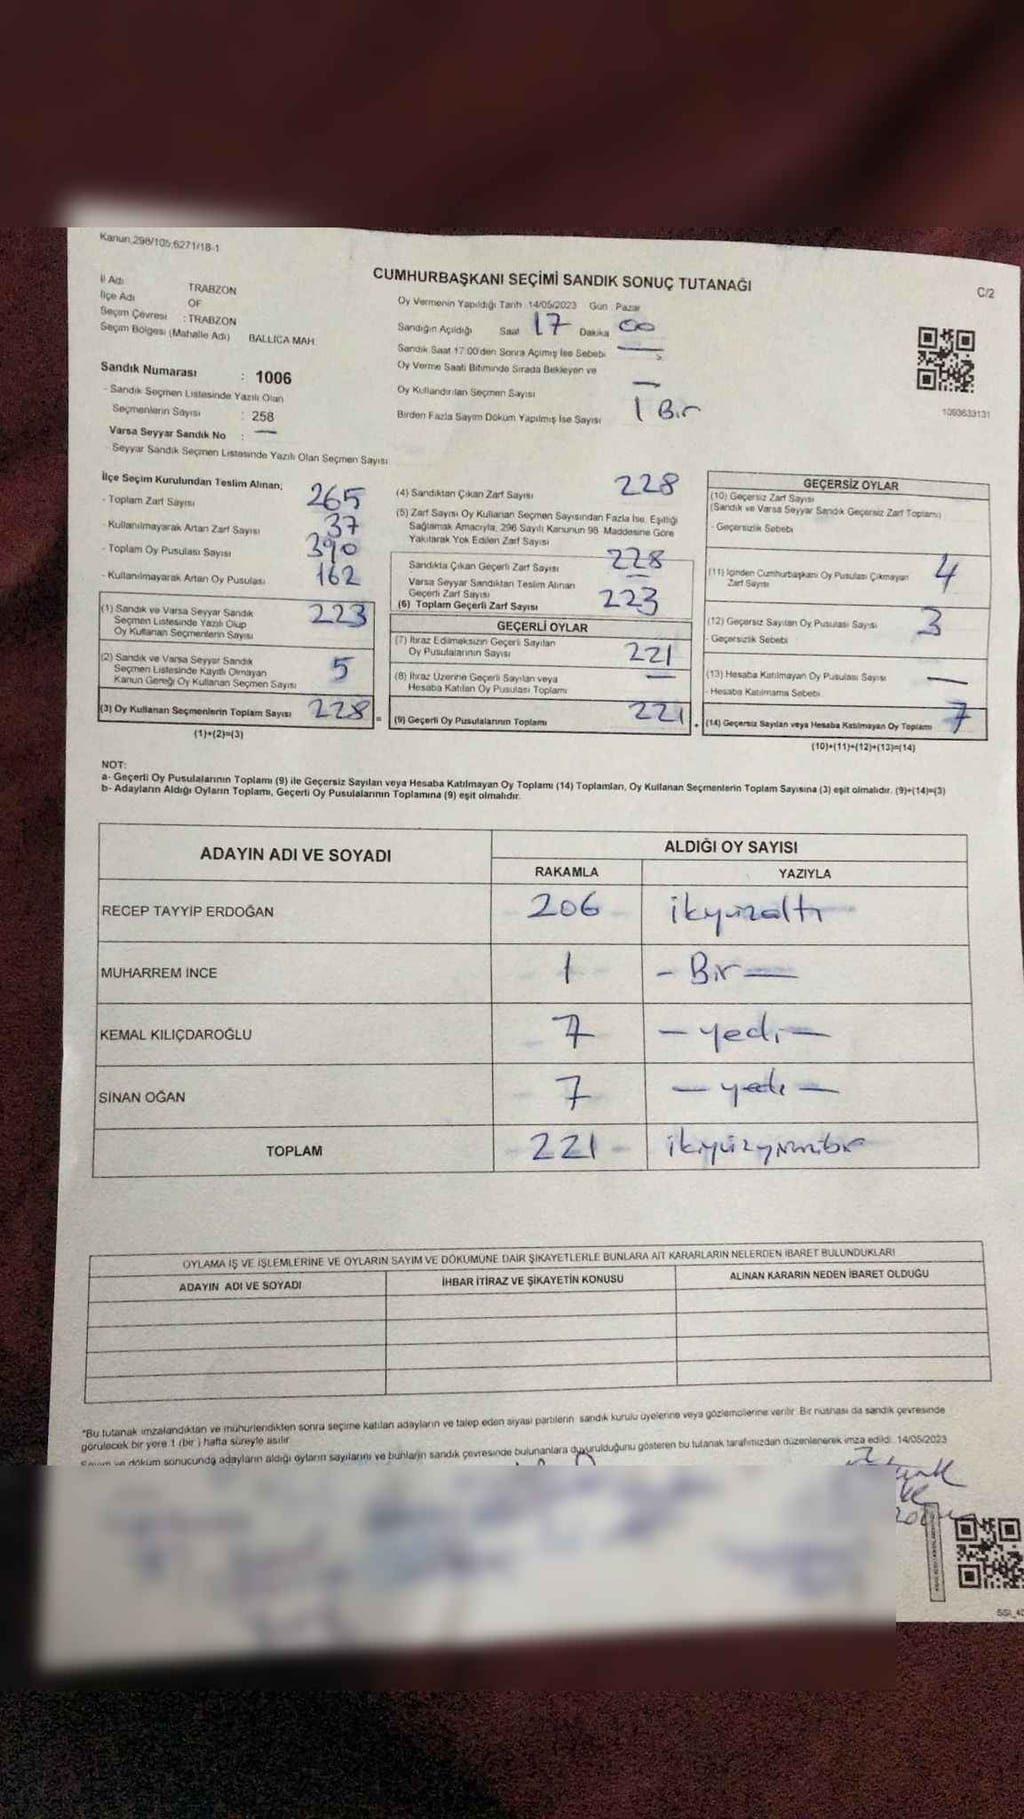 Kanun,298/105,6271/18-1
CUMHURBAŞKANI SEÇİMİ SANDIK SONUÇ TUTANAĞI
C/2
İl Adı TRABZON
İlçe Adı OF
Seçim Çevresi : TRABZON
Seçim Bölgesi (Mahalle Adı) BALLICA MAH.
Sandık Numarası : 1006
- Sandık Seçmen Listesinde Yazılı Olan
Seçmenlerin Sayısı : 258
Varsa Seyyar Sandık No : —
Seyyar Sandık Seçmen Listesinde Yazılı Olan Seçmen Sayısı
Oy Vermenin Yapıldığı Tarih :14/05/2023 Gün : Pazar
Sandığın Açıldığı Saat 17 Dakika 00
Sandık Saat 17:00'den Sonra Açımış İse Sebebi —
Oy Verme Saati Bitiminde Sırada Bekleyen ve
Oy Kullandırılan Seçmen Sayısı —
Birden Fazla Sayım Döküm Yapılmış İse Sayısı 1 Bir
1093633131
İlçe Seçim Kurulundan Teslim Alınan;
- Toplam Zarf Sayısı 265
- Kullanılmayarak Artan Zarf Sayısı 37
- Toplam Oy Pusulası Sayısı 390
- Kullanılmayarak Artan Oy Pusulası 162
(1) Sandık ve Varsa Seyyar Sandık
Seçmen Listesinde Yazılı Olup
Oy Kullanan Seçmenlerin Sayısı 223
(2) Sandık ve Varsa Seyyar Sandık
Seçmen Listesinde Kayıtlı Olmayan
Kanun Gereği Oy Kullanan Seçmen Sayısı 5
(3) Oy Kullanan Seçmenlerin Toplam Sayısı 228 =
(1)+(2)=(3)
(4) Sandıktan Çıkan Zarf Sayısı 228
(5) Zarf Sayısı Oy Kullanan Seçmen Sayısından Fazla İse, Eşitliği
Sağlamak Amacıyla, 298 Sayılı Kanunun 98. Maddesine Göre
Yakılarak Yok Edilen Zarf Sayısı
Sandıkta Çıkan Geçerli Zarf Sayısı 228
Varsa Seyyar Sandıktan Teslim Alınan
Geçerli Zarf Sayısı —
(6) Toplam Geçerli Zarf Sayısı 223
GEÇERLİ OYLAR
(7) İtiraz Edilmeksizin Geçerli Sayılan
Oy Pusulalarının Sayısı 221
(8) İtiraz Üzerine Geçerli Sayılan veya
Hesaba Katılan Oy Pusulası Toplamı —
(9) Geçerli Oy Pusulalarının Toplamı 221 +
GEÇERSİZ OYLAR
(10) Geçersiz Zarf Sayısı
(Sandık ve Varsa Seyyar Sandık Geçersiz Zarf Toplamı)
- Geçersizlik Sebebi
(11) İçinden Cumhurbaşkanı Oy Pusulası Çıkmayan
Zarf Sayısı 4
(12) Geçersiz Sayılan Oy Pusulası Sayısı 3
- Geçersizlik Sebebi
(13) Hesaba Katılmayan Oy Pusulası Sayısı —
- Hesaba Katılmama Sebebi
(14) Geçersiz Sayılan veya Hesaba Katılmayan Oy Toplamı 7
(10)+(11)+(12)+(13)=(14)
NOT:
a- Geçerli Oy Pusulalarının Toplamı (9) ile Geçersiz Sayılan veya Hesaba Katılmayan Oy Toplamı (14) Toplamları, Oy Kullanan Seçmenlerin Toplam Sayısına (3) eşit olmalıdır. (9)+(14)=(3)
b- Adayların Aldığı Oyların Toplamı, Geçerli Oy Pusulalarının Toplamına (9) eşit olmalıdır.
ADAYIN ADI VE SOYADI
ALDIĞI OY SAYISI
RAKAMLA YAZIYLA
RECEP TAYYİP ERDOĞAN 206 ikiyüzaltı
MUHARREM İNCE 1 - Bir —
KEMAL KILIÇDAROĞLU 7 — yedi —
SİNAN OĞAN 7 — yedi —
TOPLAM 221 ikiyüzyirmibir
OYLAMA İŞ VE İŞLEMLERİNE VE OYLARIN SAYIM VE DÖKÜMÜNE DAİR ŞİKAYETLERLE BUNLARA AİT KARARLARIN NELERDEN İBARET BULUNDUKLARI
ADAYIN ADI VE SOYADI İHBAR İTİRAZ VE ŞİKAYETİN KONUSU ALINAN KARARIN NEDEN İBARET OLDUĞU
*Bu tutanak imzalandıktan ve mühürlendikten sonra seçime katılan adayların ve talep eden siyasi partilerin sandık kurulu üyelerine veya gözlemcilerine verilir. Bir nüshası da sandık çevresinde
görülecek bir yere 1 (bir ) hafta süreyle asılır.
Sayım ve döküm sonucunda adayların aldığı oyların sayılarını ve bunların sandık çevresinde bulunanlara duyurulduğunu gösteren bu tutanak tarafımızdan düzenlenerek imza edildi. 14/05/2023